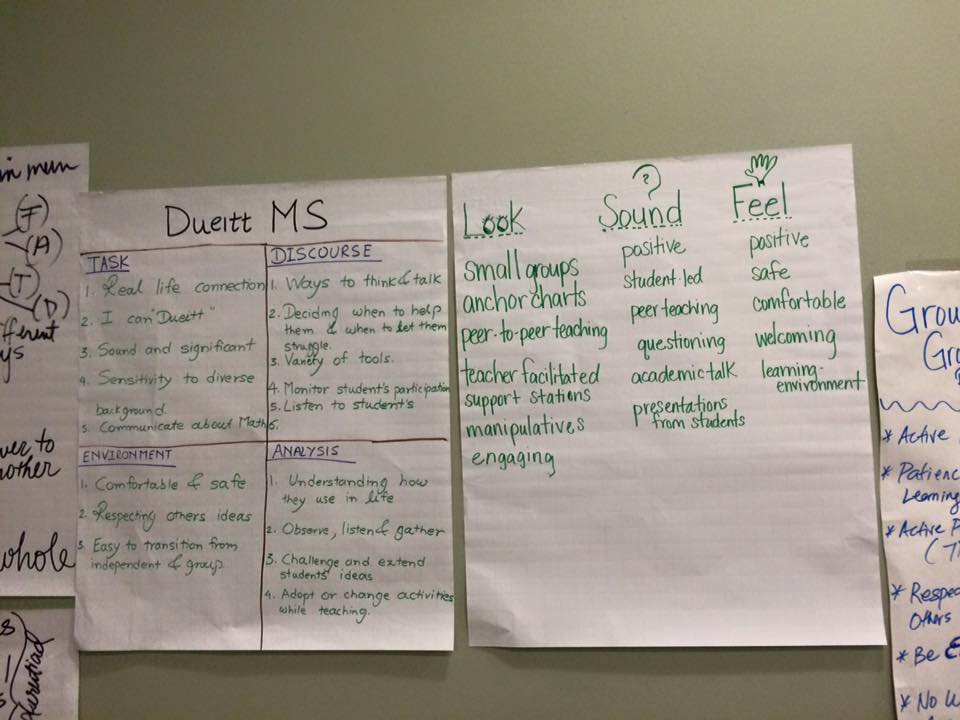 in mun
(F)
(A)
(T)
(D)
fferent
ys
ver to
nother
whole
Dueitt MS
TASK
1. Real life connection
2. I can "Dueitt"
3. Sound and significant
4. Sensitivity to diverse
background.
5. Communicate about Math
DISCOURSE
1. Ways to think & talk
2. Deciding when to help
them & when to let them
struggle.
3. Variety of tools.
4. Monitor student's participation
5. Listen to student's
6.
ENVIRONMENT
1. Comfortable & safe
2. Respecting others ideas
3. Easy to transition from
independent & group
ANALYSIS
1. Understanding how
they use in life
2. Observe, listen & gather
3. Challenge and extend
students' ideas
4. Adopt or change activities
while teaching.
Look
small groups
anchor charts
peer-to-peer teaching
teacher facilitated
support stations
manipulatives
engaging
?
Sound
positive
student-led
peer teaching
questioning
academic talk
presentations
from students
Feel
positive
safe
comfortable
welcoming
learning-
environment
Grou
Gro
* Active
* Patienc
Learning
* Active P
* Respec
Others
* Be
* No